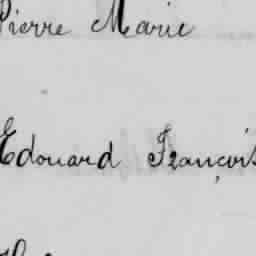 Pierre Marie
Edouard François